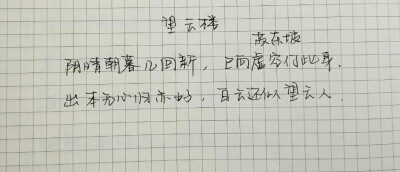 望云楼
苏东坡
阴晴朝暮几回新，已向虚空付此身。
出本无心归亦好，白云还似望云人。